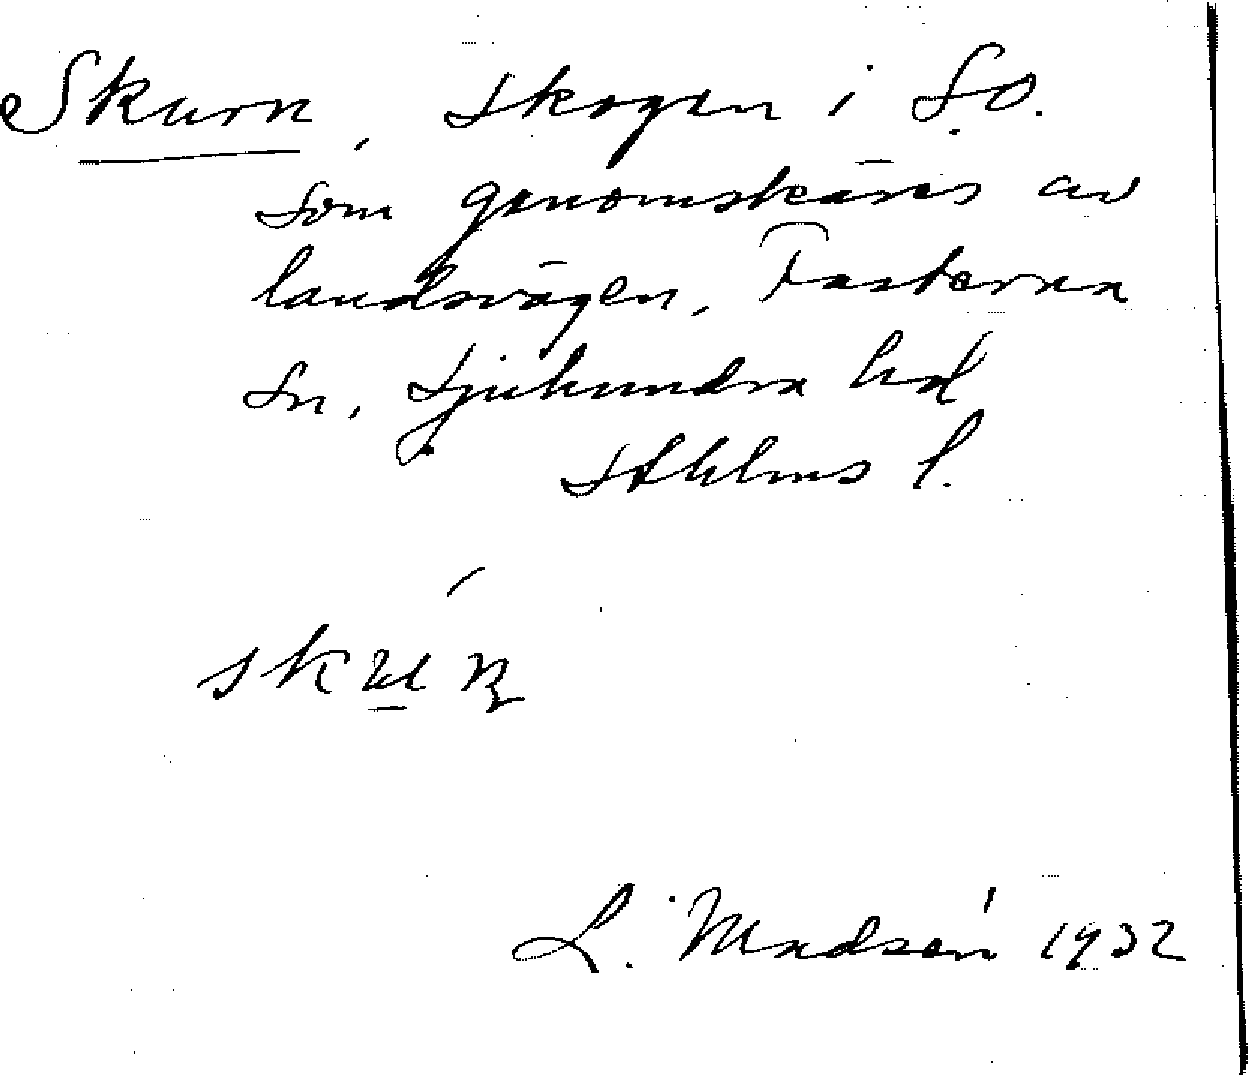 Skurn, skogen i S.O.
som genomskäres av
landsvägen, Fasterna
sn, Sjuhundra hd
Sthlms l.
L. Madsén 1932